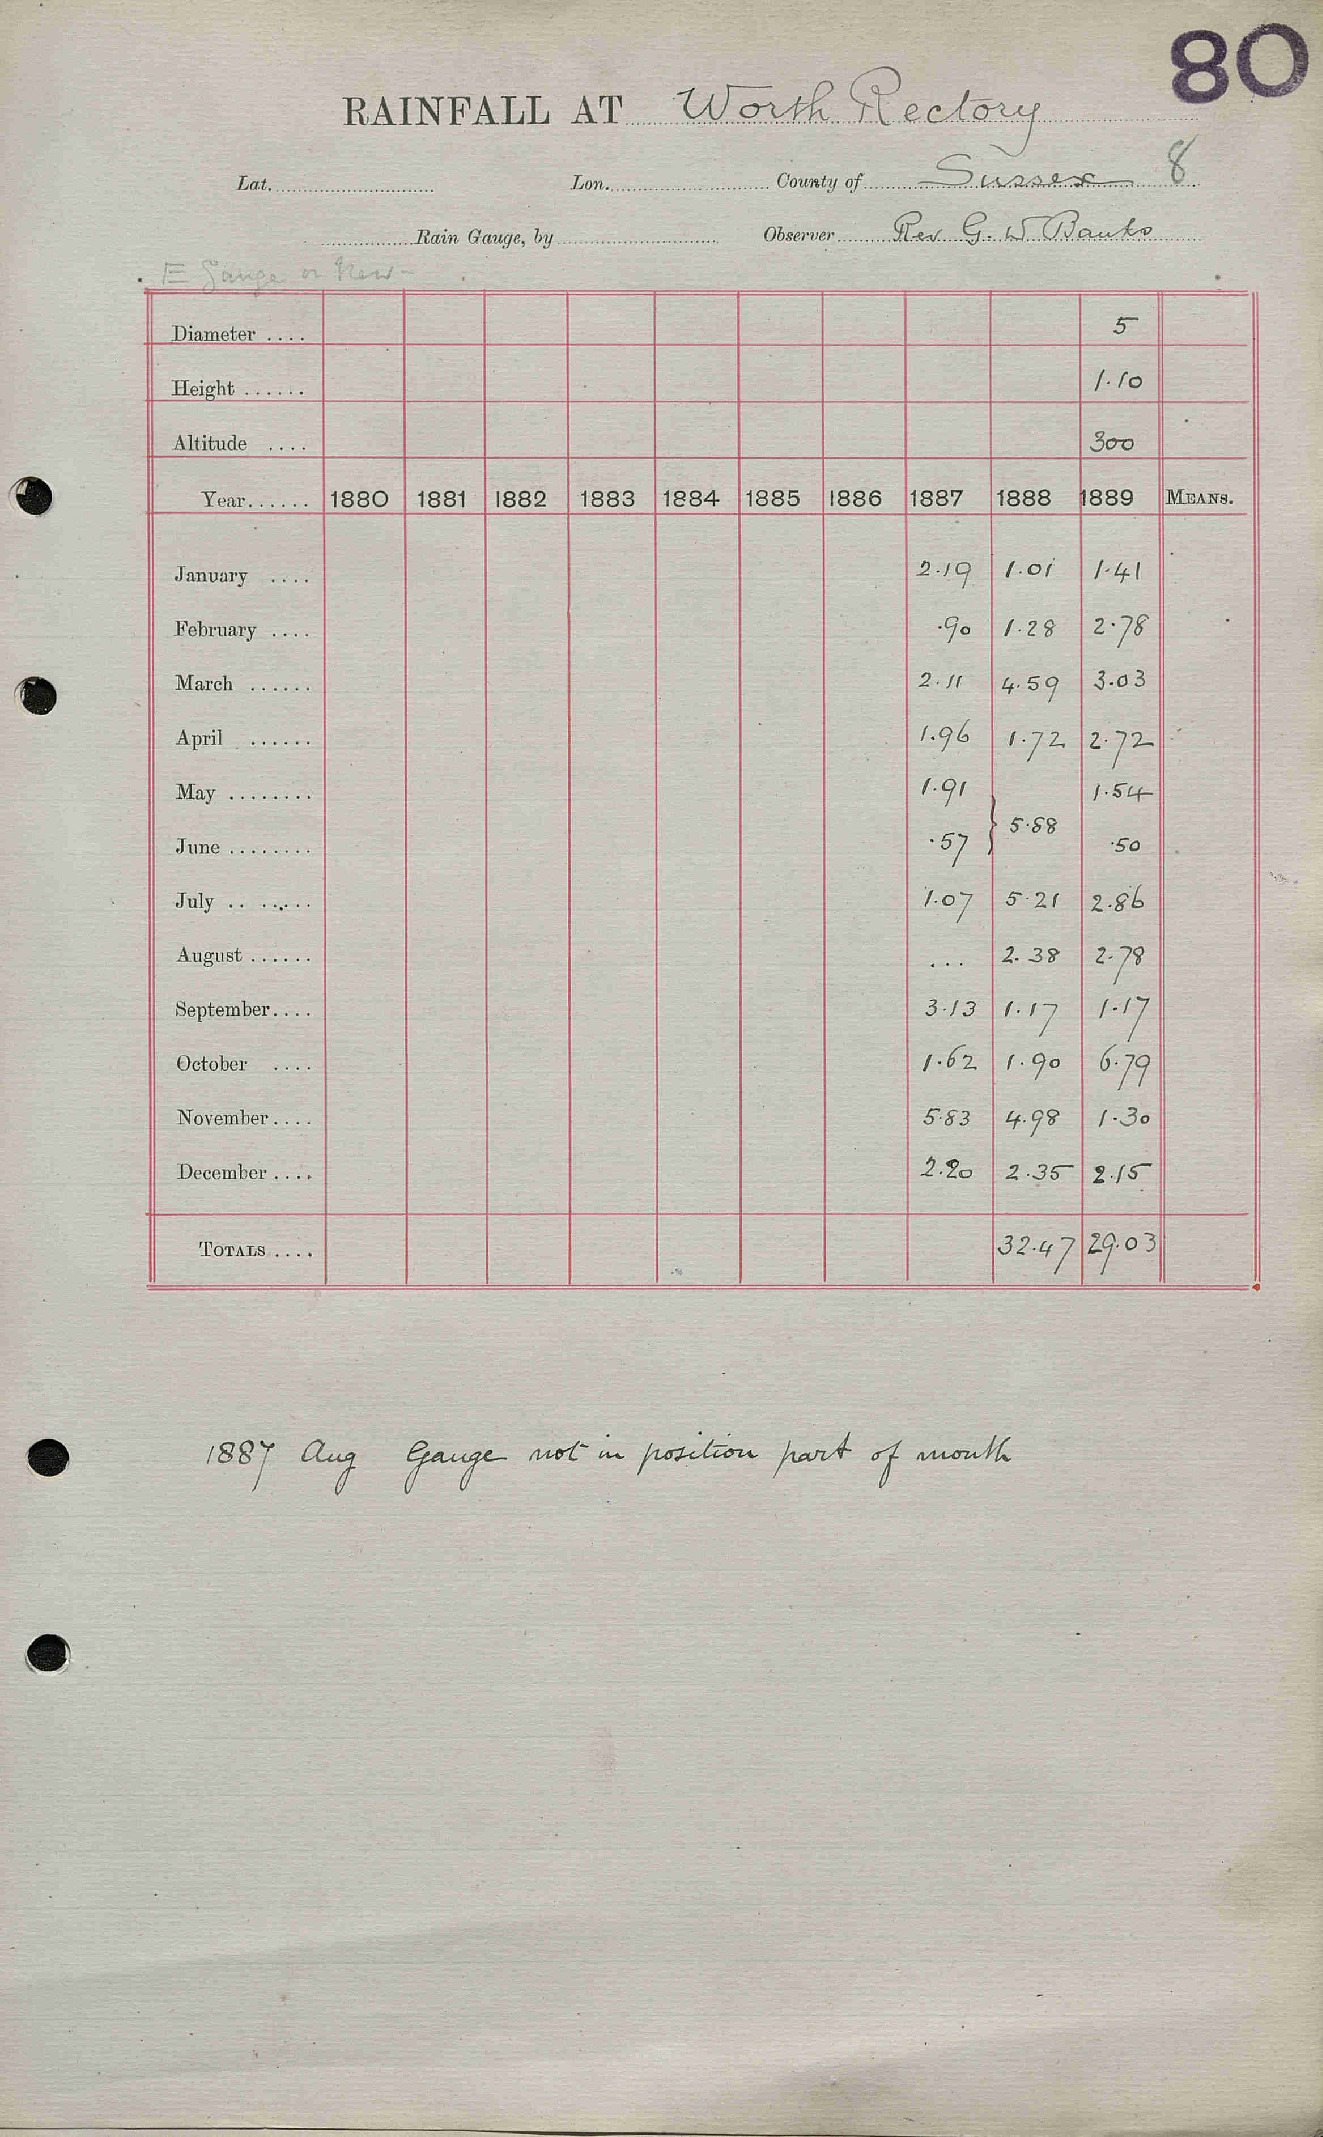 80
RAINFALL AT Worth Rectory
Lat. Lon. County of Sussex 8
Rain Gauge, by Observer Rev G. W Banks
E Gauge or New
Diameter .... 5
Height ...... 1.10
Altitude .... 300
Year...... 1880 1881 1882 1883 1884 1885 1886 1887 1888 1889 MEANS.
January .... 2.19 1.01 1.41
February .... .90 1.28 2.78
March ...... 2.11 4.59 3.03
April ...... 1.96 1.72 2.72
May ........ 1.91 1.54
} 5.88
June ........ .57 .50
July .. ...... 1.07 5.21 2.86
August ...... ... 2.38 2.78
September.... 3.13 1.17 1.17
October .... 1.62 1.90 6.79
November.... 5.83 4.98 1.30
December .... 2.20 2.35 2.15
TOTALS .... 32.47 29.03
1887 Aug Gauge not in position part of month